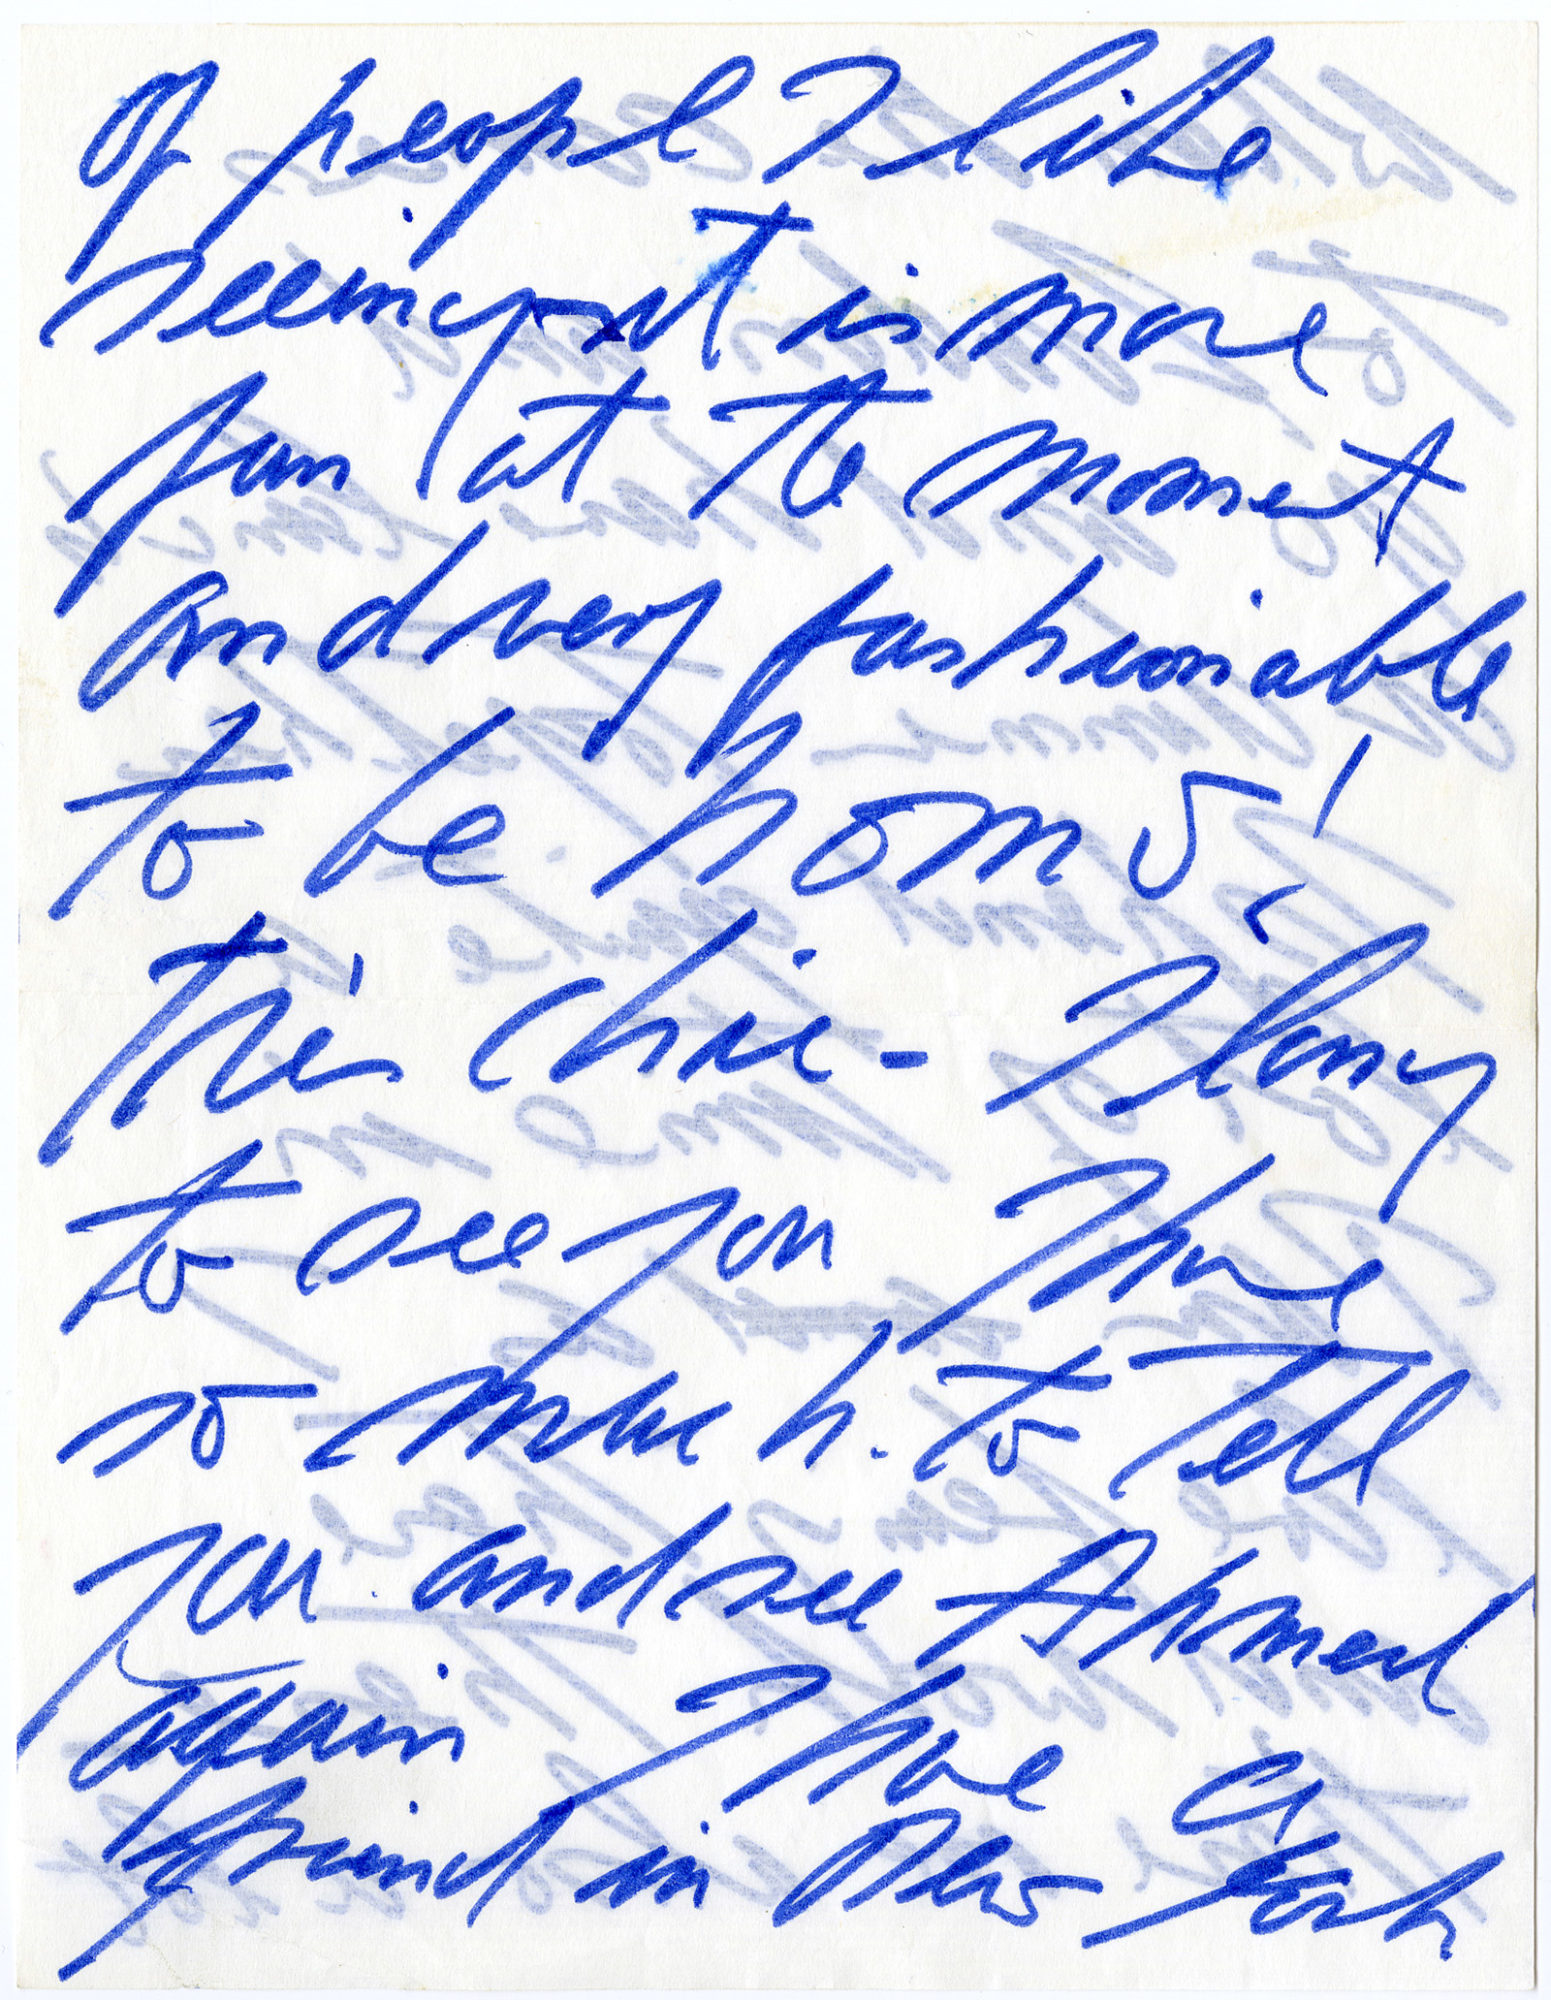 Of people I like
seeing it is more
fun at the moment
and very fashionable
to be hom
Très chic - I long
to see you I have
so much. to tell
you and see Ahmed
again I have a
friend in New York